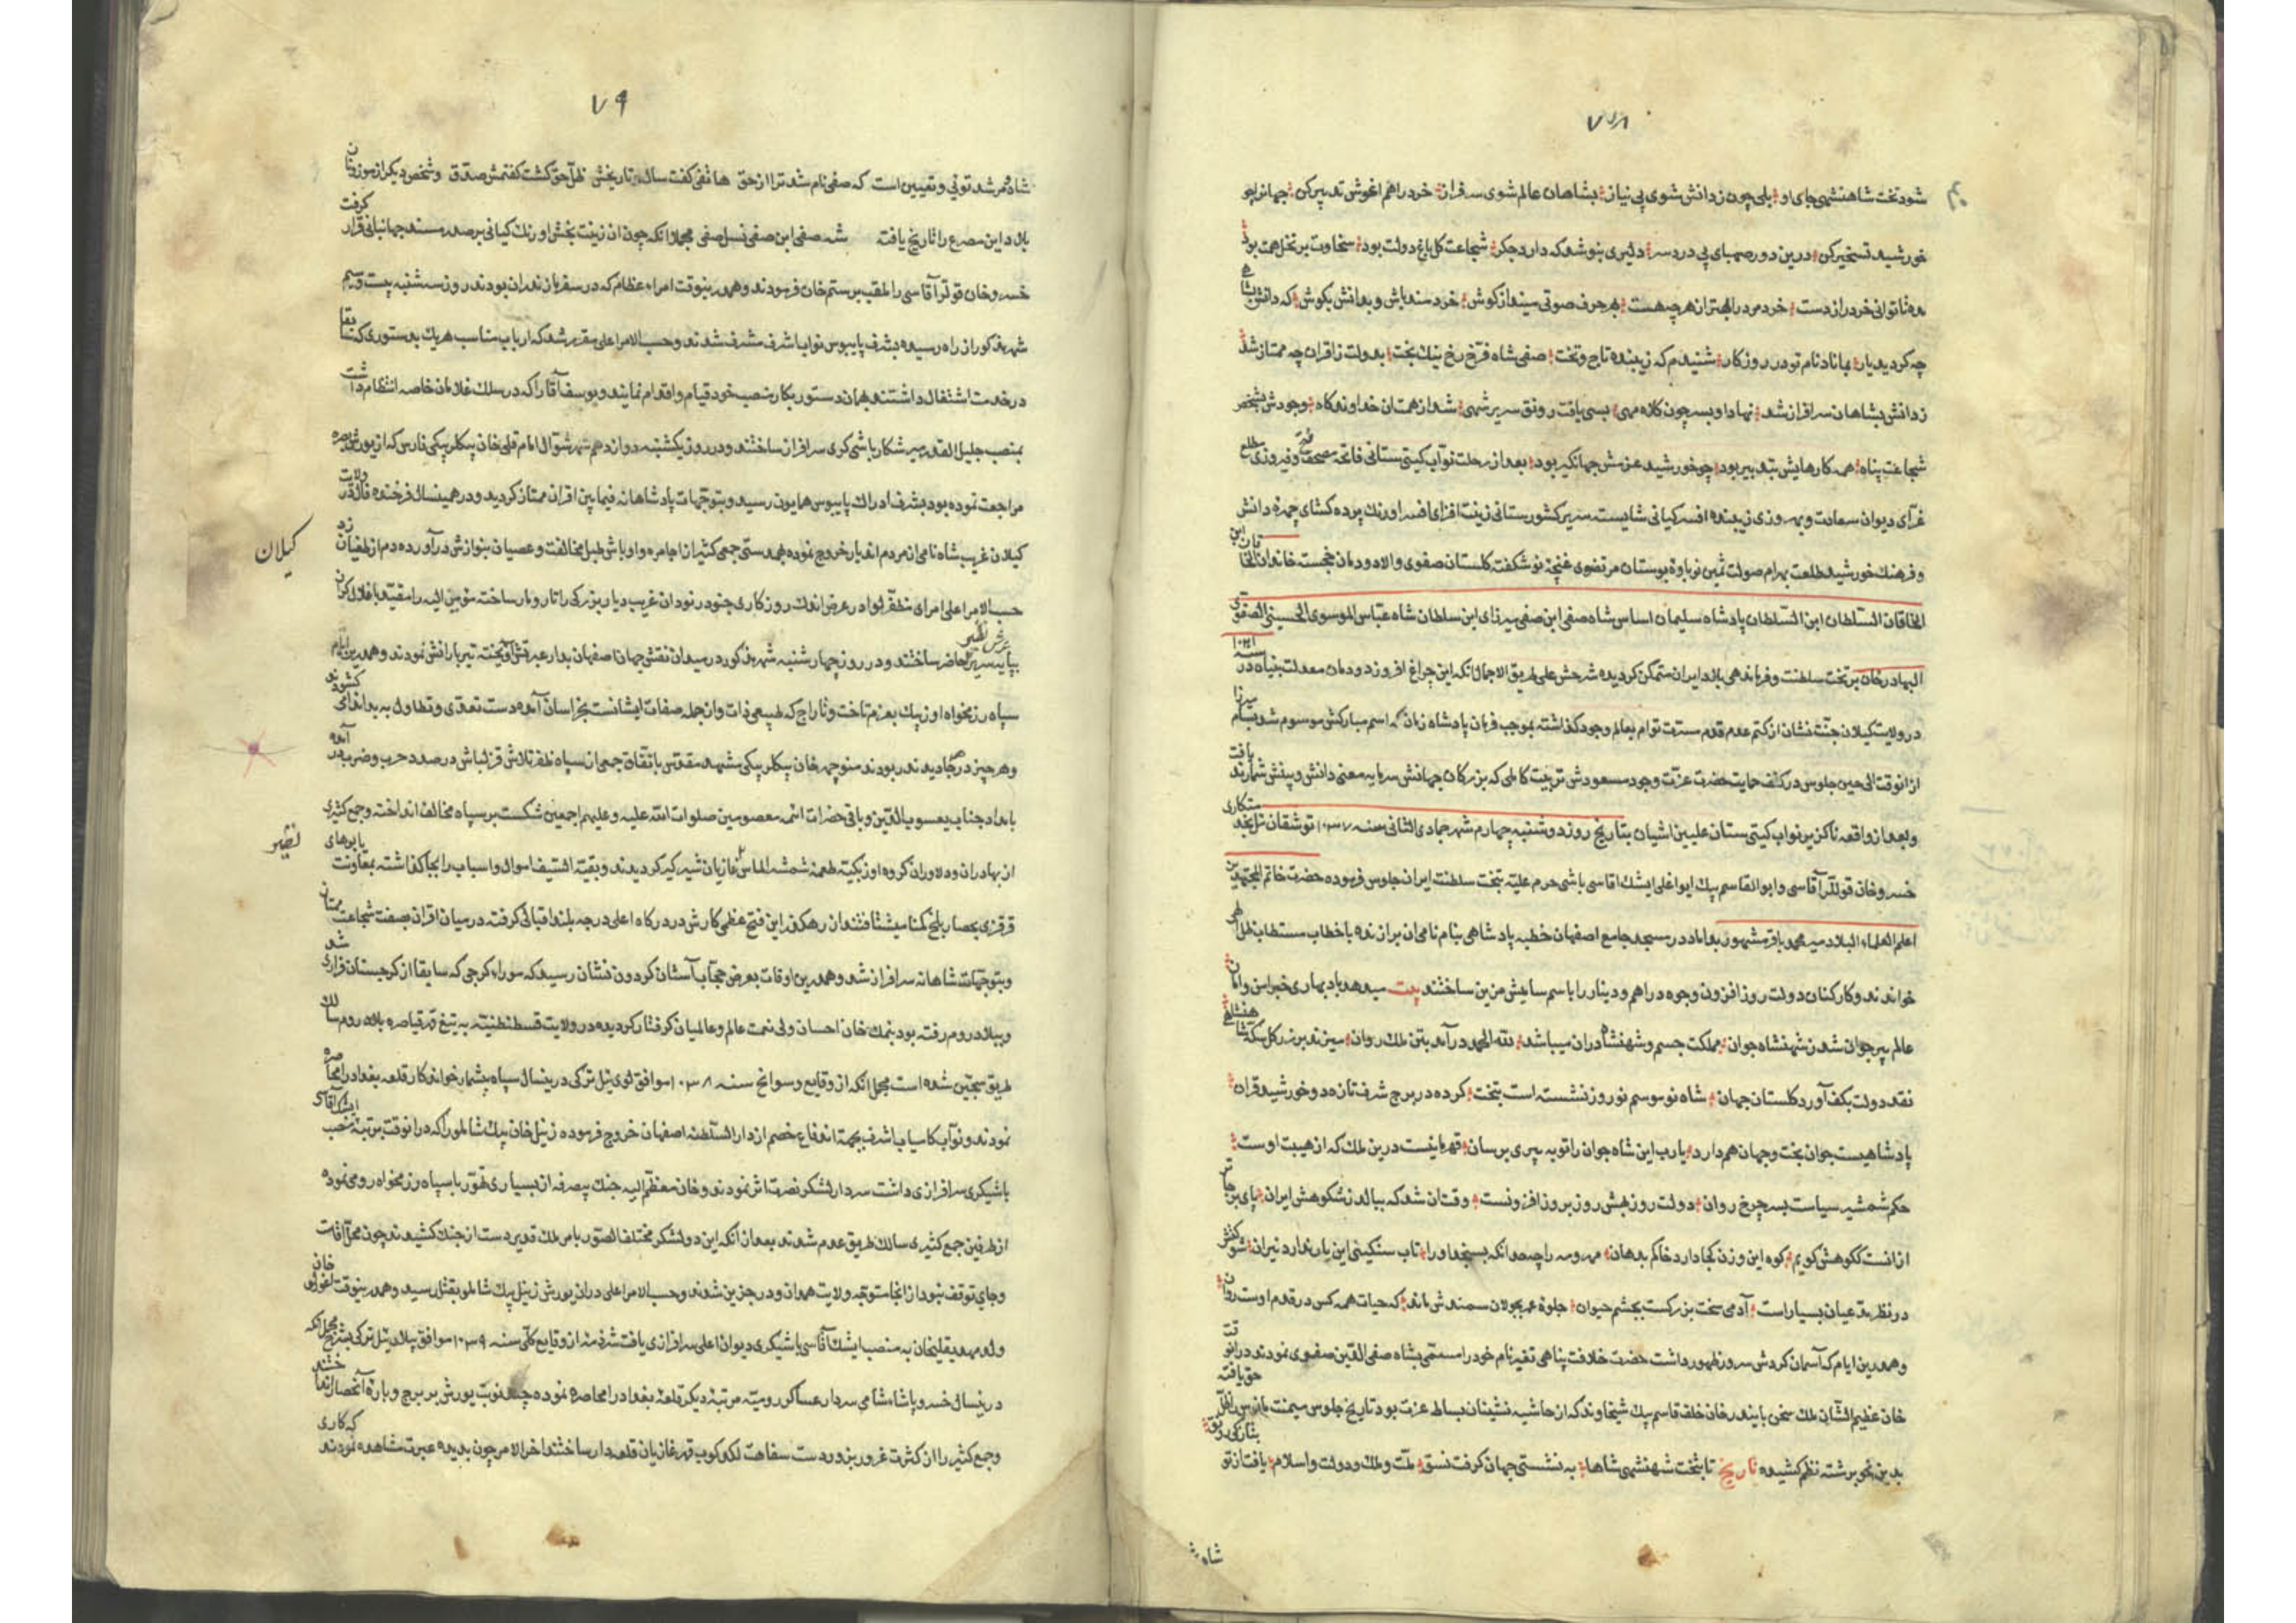 ۷۸
شود تخت شاهنشهی جای او بلی چون ز دانش شوی بی نیاز بشاهان عالم شوی سرفراز خرد را هم اغوش تدبیر کن جهانرا چو
خورشید تسخیر کن درین دور صهبای پی درد سر دلیری بنوشد که دارد جکر شجاعت کل باغ دولت بود سخاوت بر نخل همت بود
مده تا توانی خرد را ز دست خردمرد را بهتر از هر چه هست بهر حرف صوتی مینداز کوش خردمند باش و بدانش بکوش که دانش بشاهی
چه کردید یار بماناد نام تو در روزکار شنیدم که زیبنده تاج و تخت صفی شاه فرخ رخ نیک بخت بدولت ز اقران چه ممتاز شد
ز دانش بشاهان سرافراز شد نهاد او بسر چون کلاه مهی بسی یافت رونق سریر شهی شد از همت ان خداوند کاه وجودش بشخص
شجاعت پناه همه کارهایش بتدبیر بود چو خورشید عزمش جهانکیر بود بعد از رحلت نواب کیتی ستانی فاتحه مصحف فتح و فیروزی مطلع
غرای دیوان سعادت و بهروزی زیبنده افسر کیانی شایسته سریر کشورستانی زینت افزای افسر اورنک پرده کشای چهره دانش
و فرهنک خورشید طلعت بهرام صولت ثمین نوباوه بوستان مرتضوی غنچه نو شکفته کلستان صفوی والا دودمان خجسته خاندان الخاقان ابن
الخاقان السلطان ابن السلطان پادشاه سلیمان اساس شاه صفی ابن صفی میرزای ابن سلطان شاه عباس الموسوی الحسینی الصفوی
البهادر خان بر تخت سلطنت و فرماندهی بلاد ایران متمکن کردیده شرحش علی طریق الاجمال انکه این چراغ افروز دودمان معدلت بنیاه در سنه ۱۰۲۱
در ولایت کیلان جنت نشان از کتم عدم قدم مسرت توام بعالم وجود کذاشته بموجب فرمان پادشاه زمان که اسم مبارکش موسوم شد بسام میرزا
از انوقت الی حین جلوس در کنف حمایت حضرت عزت وجود مسعودش تربیت کاملی که بزرکان جهانش سرمایه معنی دانش و بینش شمارند یافت
و بعد از واقعه ناکزیر نواب کیتی ستان علیین اشیان بتاریخ روز دوشنبه چهارم شهر جمادی الثانی سنه ۱۰۳۷ توشقان ئیل
خسرو خان قوللر آقاسی و ابو القاسم بیک ایواغلی ایشک اقاسی باشی حرم علیه بتخت سلطنت ایران جلوس فرموده حضرت خاتم المجتهدین
اعلم العلماء البلاد میر محمد باقر مشهور بداماد در مسجد جامع اصفهان خطبه پادشاهی بنام نامی ان برازنده با خطاب مستطاب ظل الهی
خواندند و کارکنان دولت روز افزون وجوه دراهم و دینار را باسم سامیش مزین ساختند بیت میدهد باد بهاری خبر امن و امان
عالم پیر جوان شد ز شهنشاه جوان مملکت جسم و شهنشاه دران میباشد لله الحمد در آمد بتن ملک روان میزند بر زر کل سکه شاهنشاهی
نقد دولت بکف آورد کلستان جهان شاه نو موسم نوروز نشسته است بتخت کرده در برج شرف تازه دو خورشید قران
پادشاهیست جوان بخت و جهان هم دارد یارب این شاه جوان را تو به پیری برسان قهرمانیست درین ملک که از هیبت اوست
حکم شمشیر سیاست بسر چرخ روان دولت روز بهش روز بروز افزونست وقت ان شد که ببالد ز شکوهش ایران پای بر جاتر
از انست که کوهش کویم کوه این وزن کجا دارد خاکم بدهان مهر و مه را چه حد انکه بسنجد او را تاب سنکینی این بار ندارد میزان شوکتش
در نظر مدعیان بسیار است آدمی سخت بزرکست بچشم حیوان جلوه عمر بجولان سمندش ماند که حیات همه کس در قدم اوست روان
و همدرین ایام که آسمان کردش سر و ز ظهور داشت حضرت خلافت پناهی تغیر نام خود را مسمی بشاه صفی الدین صفوی نمودند در انوقت
خان عظیم الشان ملک سخن بایندر خان خلف قاسم بیک شیخاوند که از حاشیه نشینان بساط عزت بود تاریخ جلوس میمنت مانوس را ظل حق یافته
بدین نحو برشته نظم کشیده تاریخ تا بتخت شهنشهی شاها به نشستی جهان کرفت نسق ملت و ملک و دولت و اسلام یافت از تو
شاه
۷۹
شاه و مرشد توئی و تعیین است که صفی نام شد ترا از حق هاتفی کفت سال تاریخش ظل حق کشت کفتمش صدق و شخص دیکر از موزونان
بلاد این مصرع را تاریخ یافته شه صفی ابن صفی نسل صفی مجملا انکه چون ان زینت بخش اورنک کیانی بر صدر مسند جهانبانی قرار کرفت
خسرو خان قوللر آقاسی را ملقب برستم خان فرمودند و همدرینوقت امراء عظام که در سفر مازندران بودند روز سه شنبه بیست و سیم
شهر مذکور از راه رسیده بشرف پایبوس نواب اشرف مشرف شدند و حسب الامر اعلی مقرر شد که ارباب مناصب هر یک بدستوری که سابقا
در خدمت اشتغال داشتند بهمان دستور بکار منصب خود قیام و اقدام نمایند و یوسف آقا را که در سلک غلامان خاصه انتظام داشت
بمنصب جلیل القدر میر شکار باشی کری سرافراز ساختند و در روز یکشنبه دوازدهم شهر شوال امام قلی خان بیکلر بیکی فارس که از یورش بصره
مراجعت نموده بود بشرف ادراک پایبوس همایون رسید و بتوجهات پادشاهانه فیما بین اقران ممتاز کردید و در همینسال فرخنده فال در ولایت
کیلان غریب شاه نامی از مردم اندیار خروج نموده بهمدستی جمعی کثیر از اجامره و اوباش طبل مخالفت و عصیان بنوازش درآورده دم از طغیان زد
کیلان
حسب الامر اعلی امرای مظفر لوا در عرض اندک روزکاری جنود نمود ان غریب دیار بزرکی را تار و مار ساخته مومی الیه را مقید باغلال کران
بپایه سریر عرش نظیر حاضر ساختند و در روز چهارشنبه شهر مذکور در میدان نقش جهان اصفهان بدار عبرتش آویخته تیربارانش نمودند و همدرین ایام
سپاه رزمخواه اوزبک بعزم تاخت و تاراج که طبیعی ذات و از جمله صفات ایشانست بخراسان آمده دست تعدی و تطاول به بد اندیشی کشودند
و هر چیز در هر جا دیدند ربودند منوچهر خان بیکلر بیکی مشهد مقدس باتفاق جمعی از سپاه ظفر تلاش قزلباش در صدد حرب و ضرب در آمده
بامداد جناب یعسوب الدین و باقی حضرات ائمه معصومین صلوات الله علیه و علیهم اجمعین شکست بر سپاه مخالف انداخته و جمع کثیری
از بهادران و دلاوران کروه اوزبکیه طعمه شمشیر الماس غازیان شیر کیر کردیدند و بقیة السیف اموال و اسباب را بجا کذاشته بمعاونت یابوهای
قرقزی بحصار بلخ کمنا میشتافتند از رهکذر این فتح عظمی کارش در درکاه اعلی درجه بلند اقبالی کرفته در میان اقران بصفت شجاعت ممتاز
و بتوجهات شاهانه سرافراز شد و همدرین اوقات بعرض حجاب آستان کردون نشان رسید که موراو کرجی که سابقا از کرجستان فراری شده
و ببلاد روم رفته بود بنمک خان احسان ولی نعمت عالم و عالمیان کرفتار کردیده در ولایت قسطنطنیه به تیغ قهر قیاصره بلاد روم سالک
طریق سجین شده است مجملا انکه از وقایع و سوانح سنه ۱۰۳۸ موافق لوی ئیل ترکی درینسال سپاه بیشمار خواندکار قلعه بغداد را محاصره
نمودند و نواب کامیاب اشرف بجهة اندفاع خصم از دار السلطنه اصفهان خروج فرموده زینل خان بیک شاملو را که در انوقت برتبه منصب ایشک آقاسی
باشیکری سرافرازی داشت سردار لشکر نصرت اثر نمودند و خان معظم الیه جنک بیصرفه از بسیاری تهور با سپاه رزمخواه رومی نموده
از طرفین جمع کثیری سالک طریق عدم شدند بعد از انکه این دو لشکر مختلف الصور بامر ملک قدیر دست از جنک کشیدند چون محل اقامت
و جای توقف نبود از انجا متوجه ولایت همدان و درجزین شدند و حسب الامر اعلی دران یورش زینل بیک شاملو بقتل رسید و همدرینوقت اغورلو خان
ولد محمد یقلیخان به منصب ایشک آقاسی باشیکری دیوان اعلی سرافرازی یافت شرذمه از وقایع کلی سنه ۱۰۳۹ موافق ییلان ئیل ترکی بشرح مجمل انکه
درینسال خسرو پاشاه شامی سردار عساکر رومیه مرتبه دیکر قلعه بغداد را محاصره نموده چند نوبت یورش بر برج و باره آنحصار انداختند
و جمع کثیر را از کثرت غرور بزور دست سفاهت لکد کوب قهر غازیان قلعه دار ساختند اخر الامر چون بدیده عبرت مشاهده نمودند که کاری